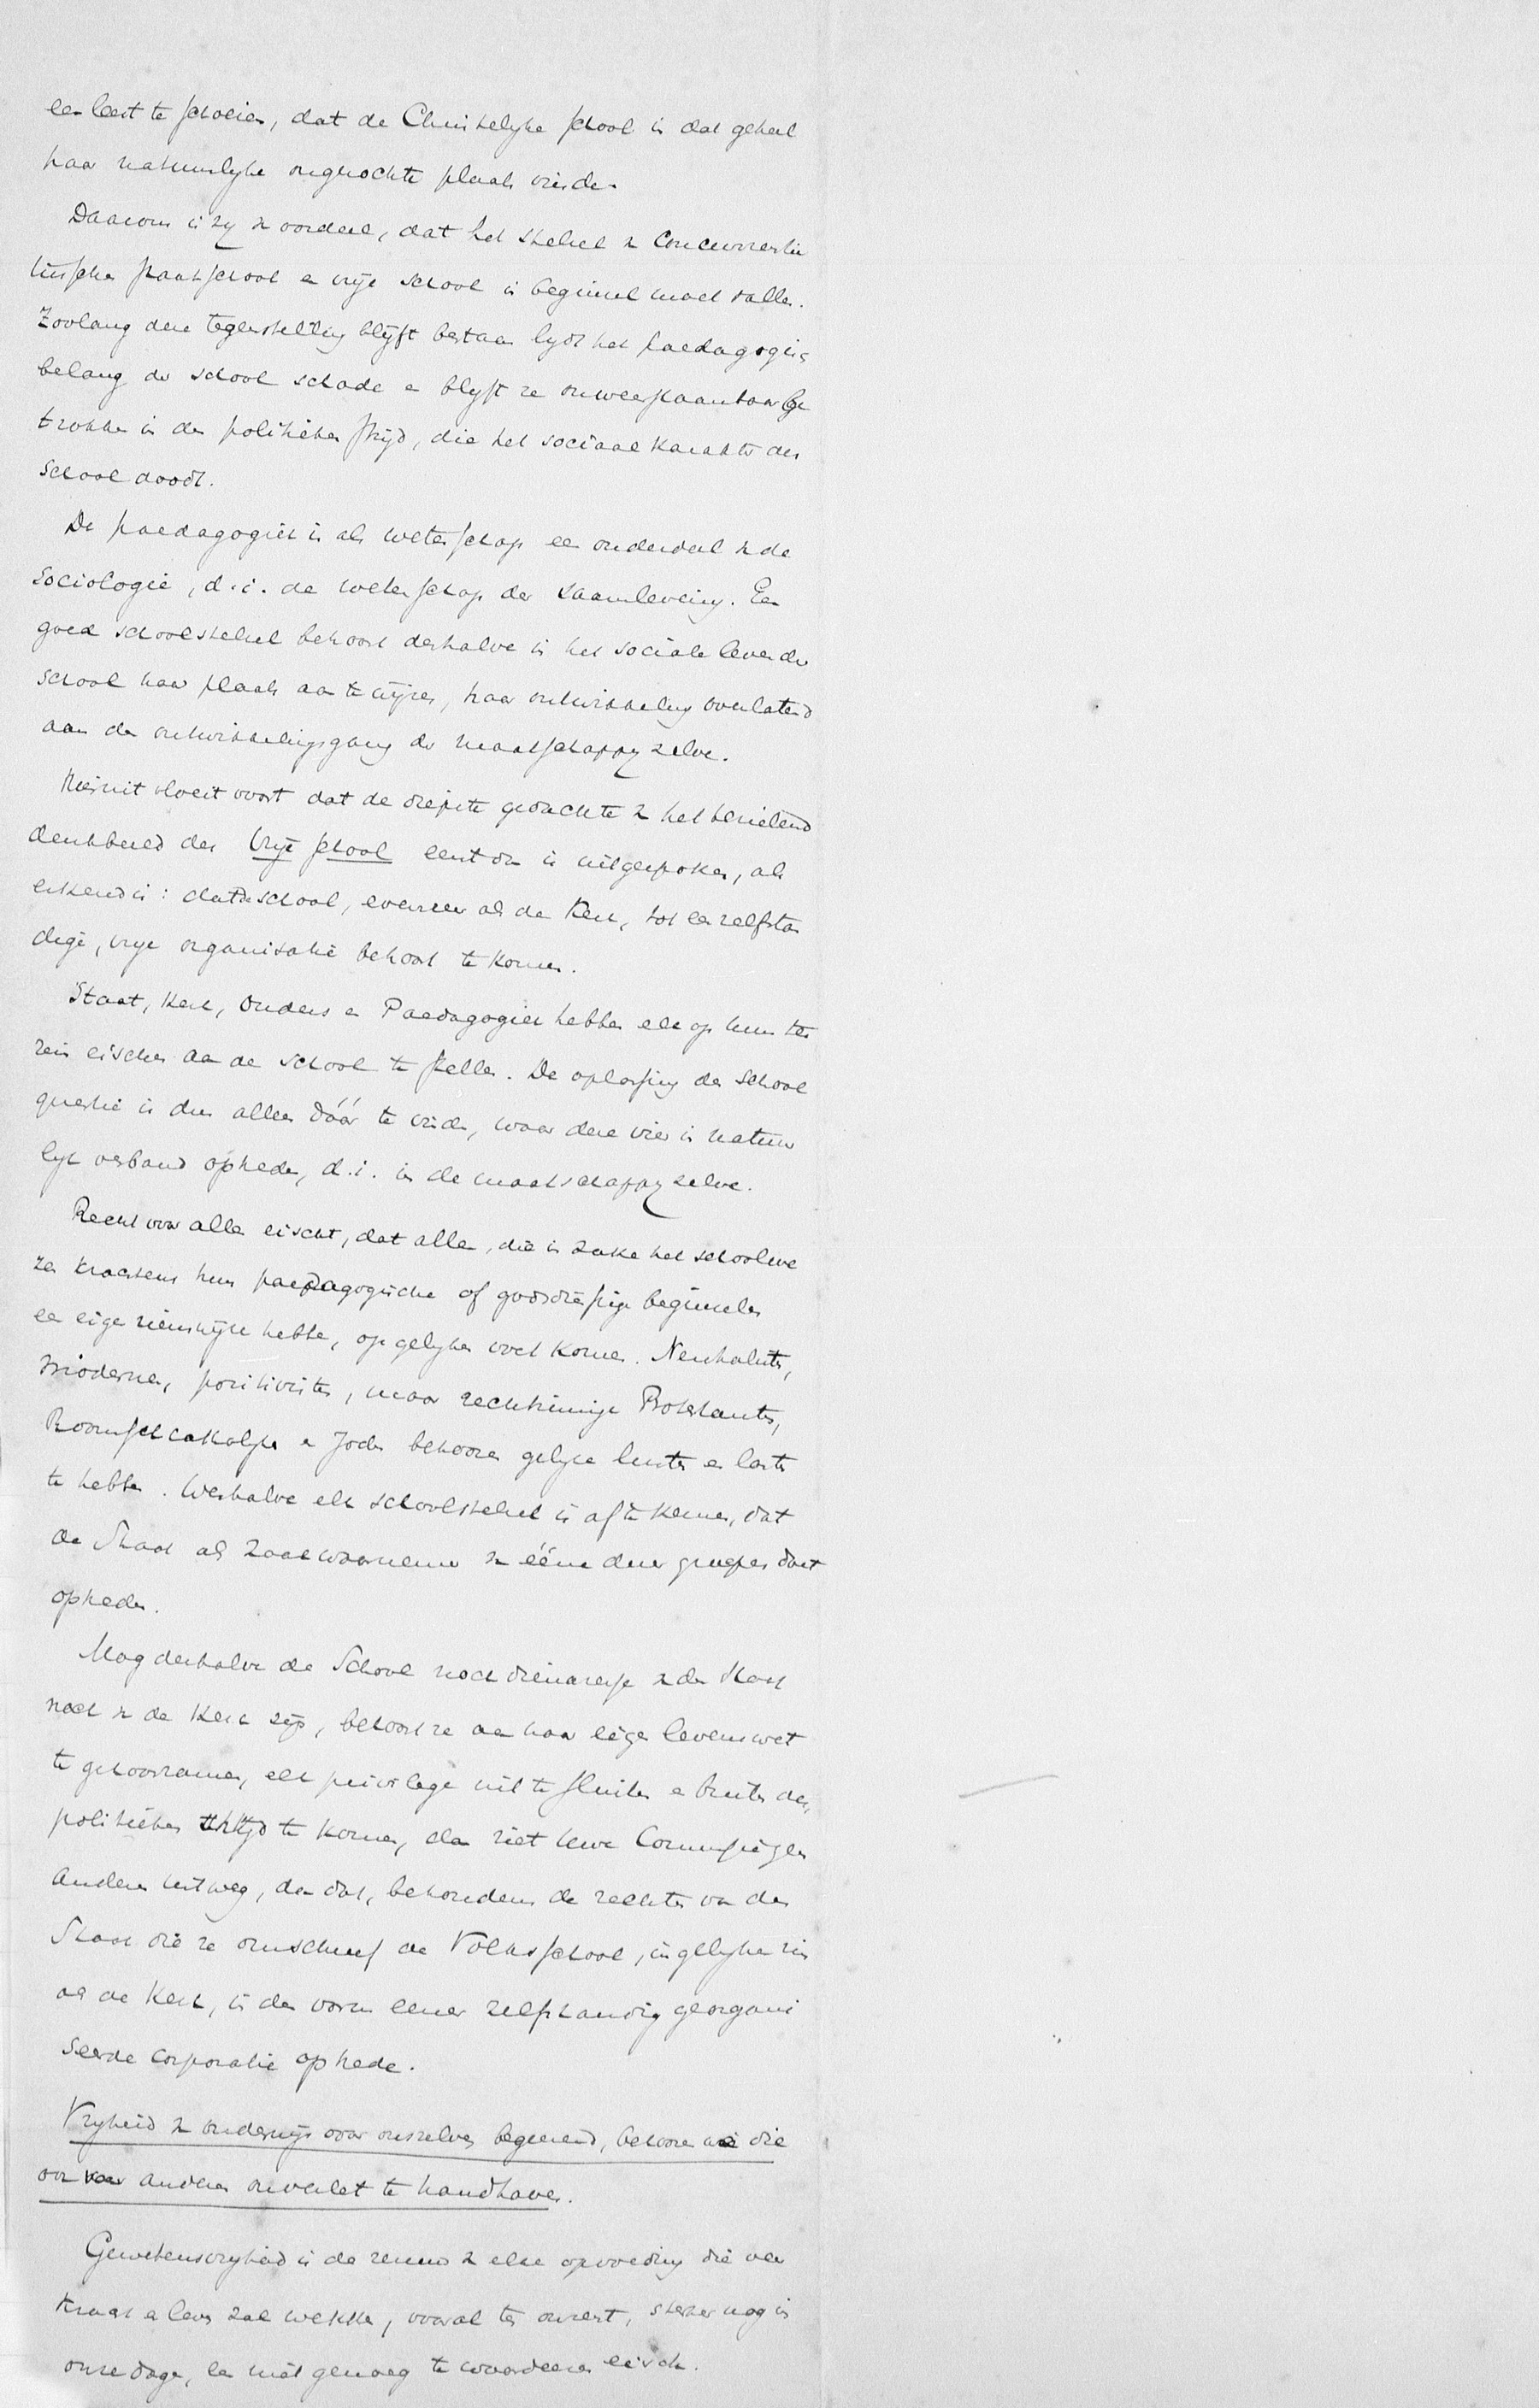 een leest te schoeien, dat de Christelyke school in dat geheel
haar natuurlyke ongezochte plaats vinde.
Daarom is zy v oordeel, dat het stelsel v concurreerstie
tusschen staatsschool en vrije school in beginsel moet vallen.
Zoolang deze tegenstelling blijft bestaan lydt het paedagogisch
belang der school schade en blyft ze onweerstaanbaar be
trokken in den politieken strijd, die het sociaal karakter der
school doodt.
De paedagogiek is als wetenschap een onderdeel v de
Sociologie, d.i. de wetenschap der saamleving. Een
goed schoolstelsel behoort derhalve in het sociale leven der
school haar plaats aan te wijzen, haar ontwikkeling overlatend
aan den ontwikkelingsgang der maatschappy zelve.
Hieruit vloeit voort dat de diepste gedachte v het bezielend
denkbeeld der Vrije school eerst dan is uitgesproken, als
erkend is: dat de school, evenzeer als de Kerk, tot een zelfstan
dige, vrye organisatie behoort te komen.
Staat, Kerk, Ouders en Paedagogiek hebben elk op hun ter
rein eischen aan de school te stellen. De oplossing der School
questie is dus alleen dáár te vinden, waar deze vier in natuur
lyk verband optreden, d.i. in de maatschappy zelve.
Recht voor allen eischt, dat allen, die in zake het schoolwe
zen krachtens hun paedagogische of godsdienstige beginselen
een eigen zienswijze hebben, op gelyken voet komen. Neutralisten,
Modernen, positivisten, maar rechtzinnige Protestanten,
Roomschkatholyken en Joden behooren gelyke lusten en lasten
te hebben. Weshalve elk schoolstelsel is af te keuren, dat
de Staat als zaakwaarnemer v ééne dezer groepen doet
optreden.
Mag derhalve de School noch dienaresse v den Staat
noch v de Kerk zijn, behoort ze aan haar eigen levenswet
te gehoorzamen, elk privilege uit te sluiten en buiten den
politieken strijd te komen, dan ziet Uwe Commissie geen
anderen uitweg, dan dat, behoudens de rechten van den
Staat die ze omschreef de Volksschool, in gelyken zin
als de Kerk, in den vorm eener zelfstandig georgani
seerde corporatie optrede.
Vryheid v onderwijs voor onszelven begeerend, behooren wij die
ook voor anderen onverlet te handhaven.
Gewetensvryheid is de zenuw v elke opvoeding die veer
kracht en leven zal wekken, vooral ten onzent, sterker nog in
onze dagen, een niet genoeg te waardeeren eisch.